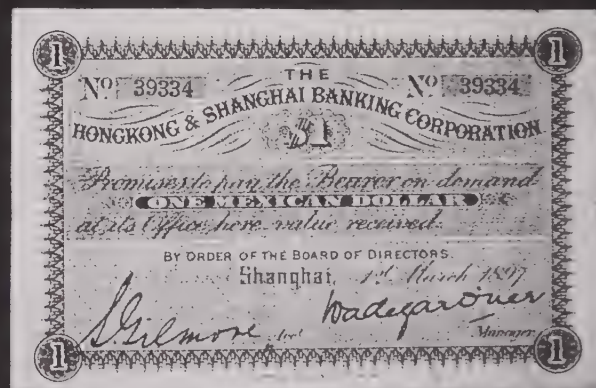 1 1
THE
Nº 39334 Nº 39334
HONGKONG & SHANGHAI BANKING CORPORATION
$1
Promises to pay the Bearer on demand
ONE MEXICAN DOLLAR
at its Office here value received.
BY ORDER OF THE BOARD OF DIRECTORS.
Shanghai, 1st March 1897
S Gilmore Acct Wade Gardner Manager
1 1